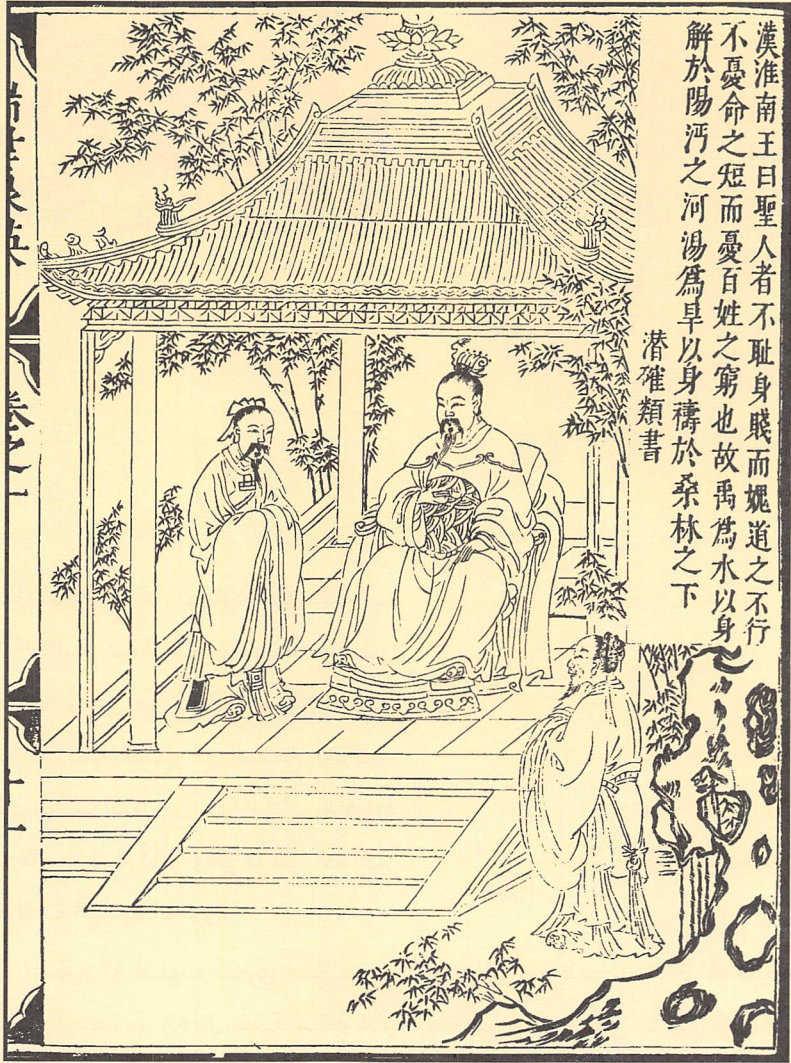 漢淮南王曰聖人者不耻身賤而媿道之不行
不憂命之短而憂百姓之窮也故禹爲水以身
解於陽沔之河湯爲旱以身禱於桑林之下
潜確類書
瑞世良英
卷之一